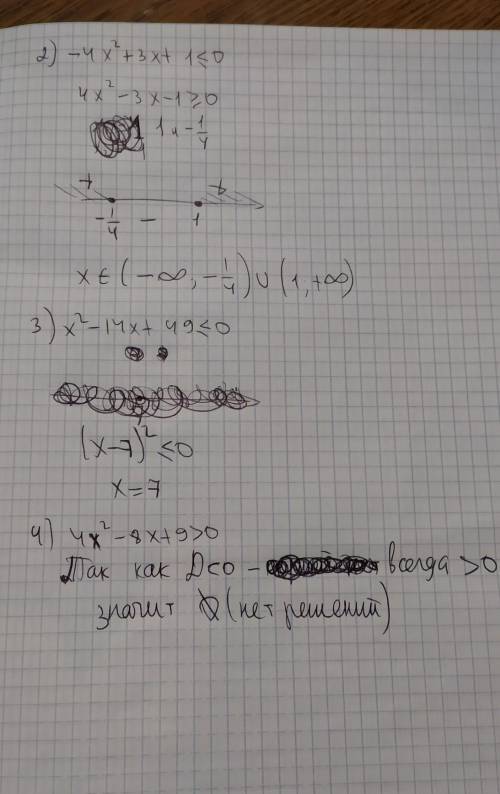 2) -4x²+3x+1≤0
4x²-3x-1≥0
1 и -1/4
+ +
-1/4 - 1
x∈(-∞, -1/4)∪(1,+∞)
3) x²-14x+49≤0
7
(x-7)²≤0
x=7
4) 4x²-8x+9>0
Так как D<0 - всегда >0
значит ∅ (нет решений)